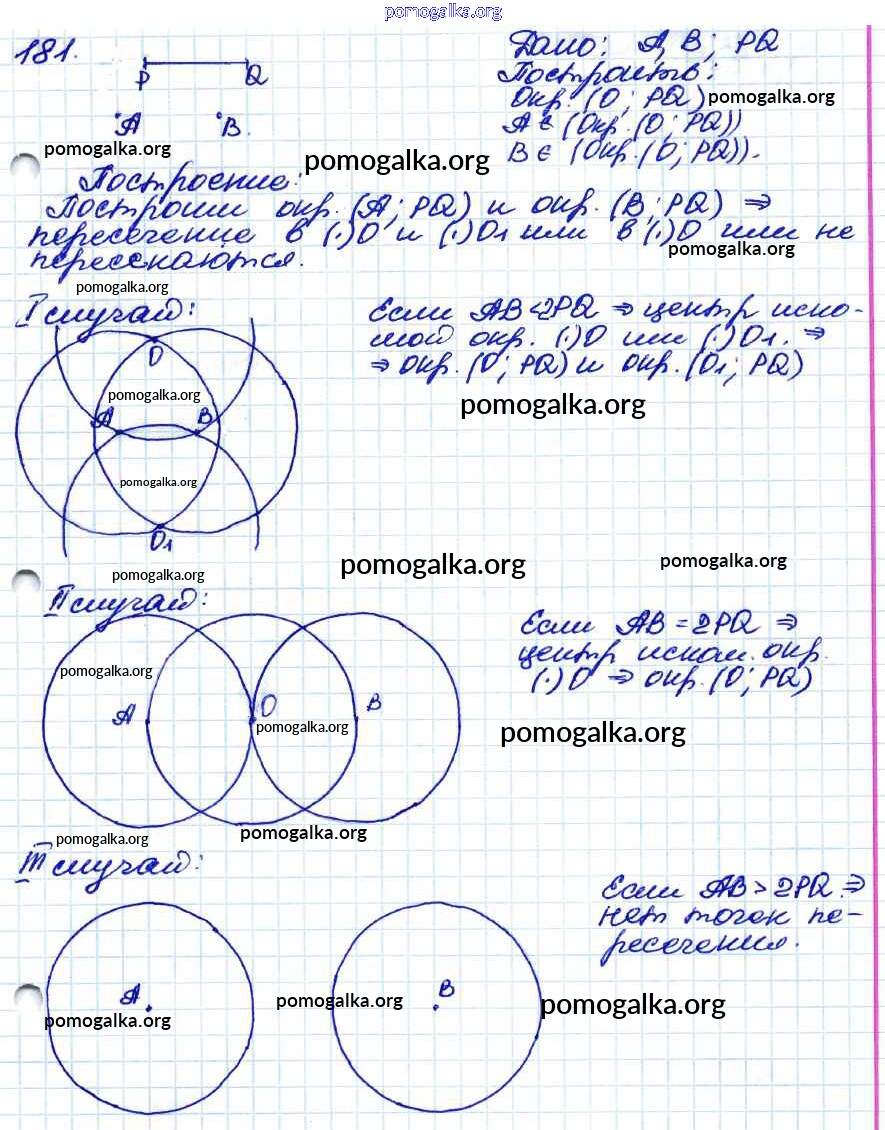 pomogalka.org
181.
P Q
A B.
pomogalka.org
Дано: A, B; PQ
Построить:
Окр. (O; PQ) pomogalka.org
A ∈ (Окр. (O; PQ))
B ∈ (Окр. (O; PQ)).
pomogalka.org
Построение:
Построим окр. (A; PQ) и окр. (B; PQ) ⇒
пересечение в (·)O и (·)O1 или в (·)O или не
pomogalka.org
пересекаются.
pomogalka.org
I случай:
O
pomogalka.org
A B
pomogalka.org
O1
pomogalka.org
Если AB<2PQ ⇒ центр иско-
мой окр. (·)O или (·)O1. ⇒
⇒ окр. (O; PQ) и окр. (O1; PQ)
pomogalka.org
pomogalka.org
pomogalka.org
II случай:
pomogalka.org
A O B
pomogalka.org
pomogalka.org
Если AB = 2PQ ⇒
центр иском. окр.
(·)O ⇒ окр. (O; PQ)
pomogalka.org
pomogalka.org
III случай:
Если AB > 2PQ ⇒
нет точек пе-
ресечения.
A B
pomogalka.org
pomogalka.org
pomogalka.org